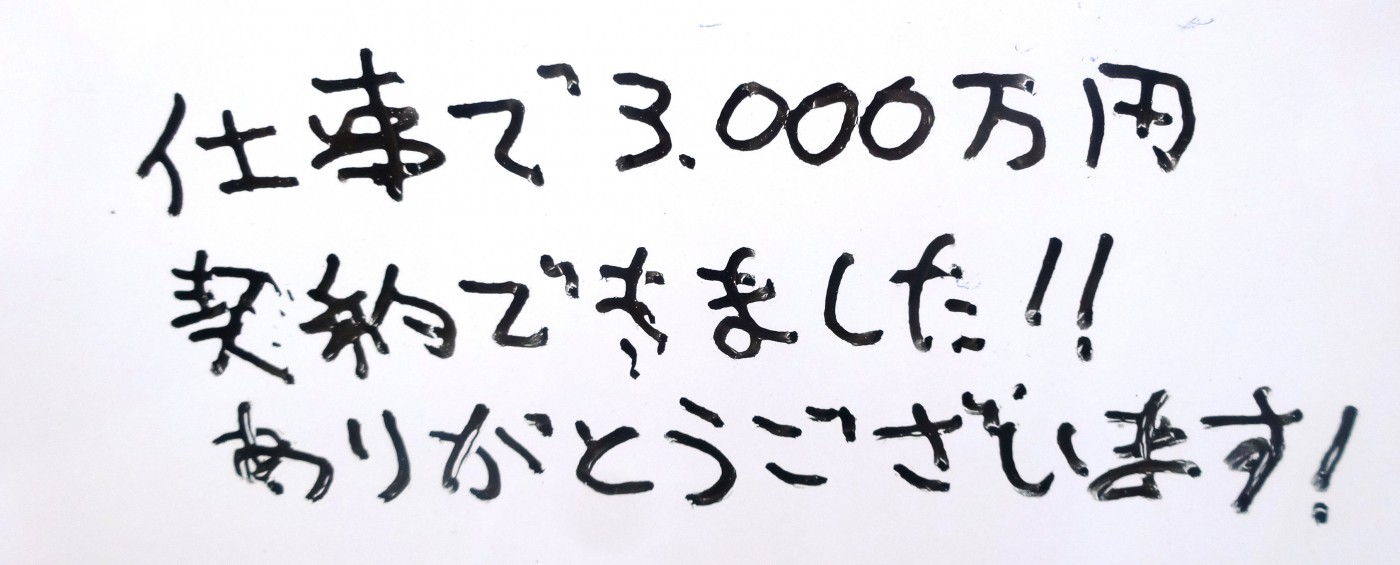 仕事で3.000万円
契約できました!!
ありがとうございます!